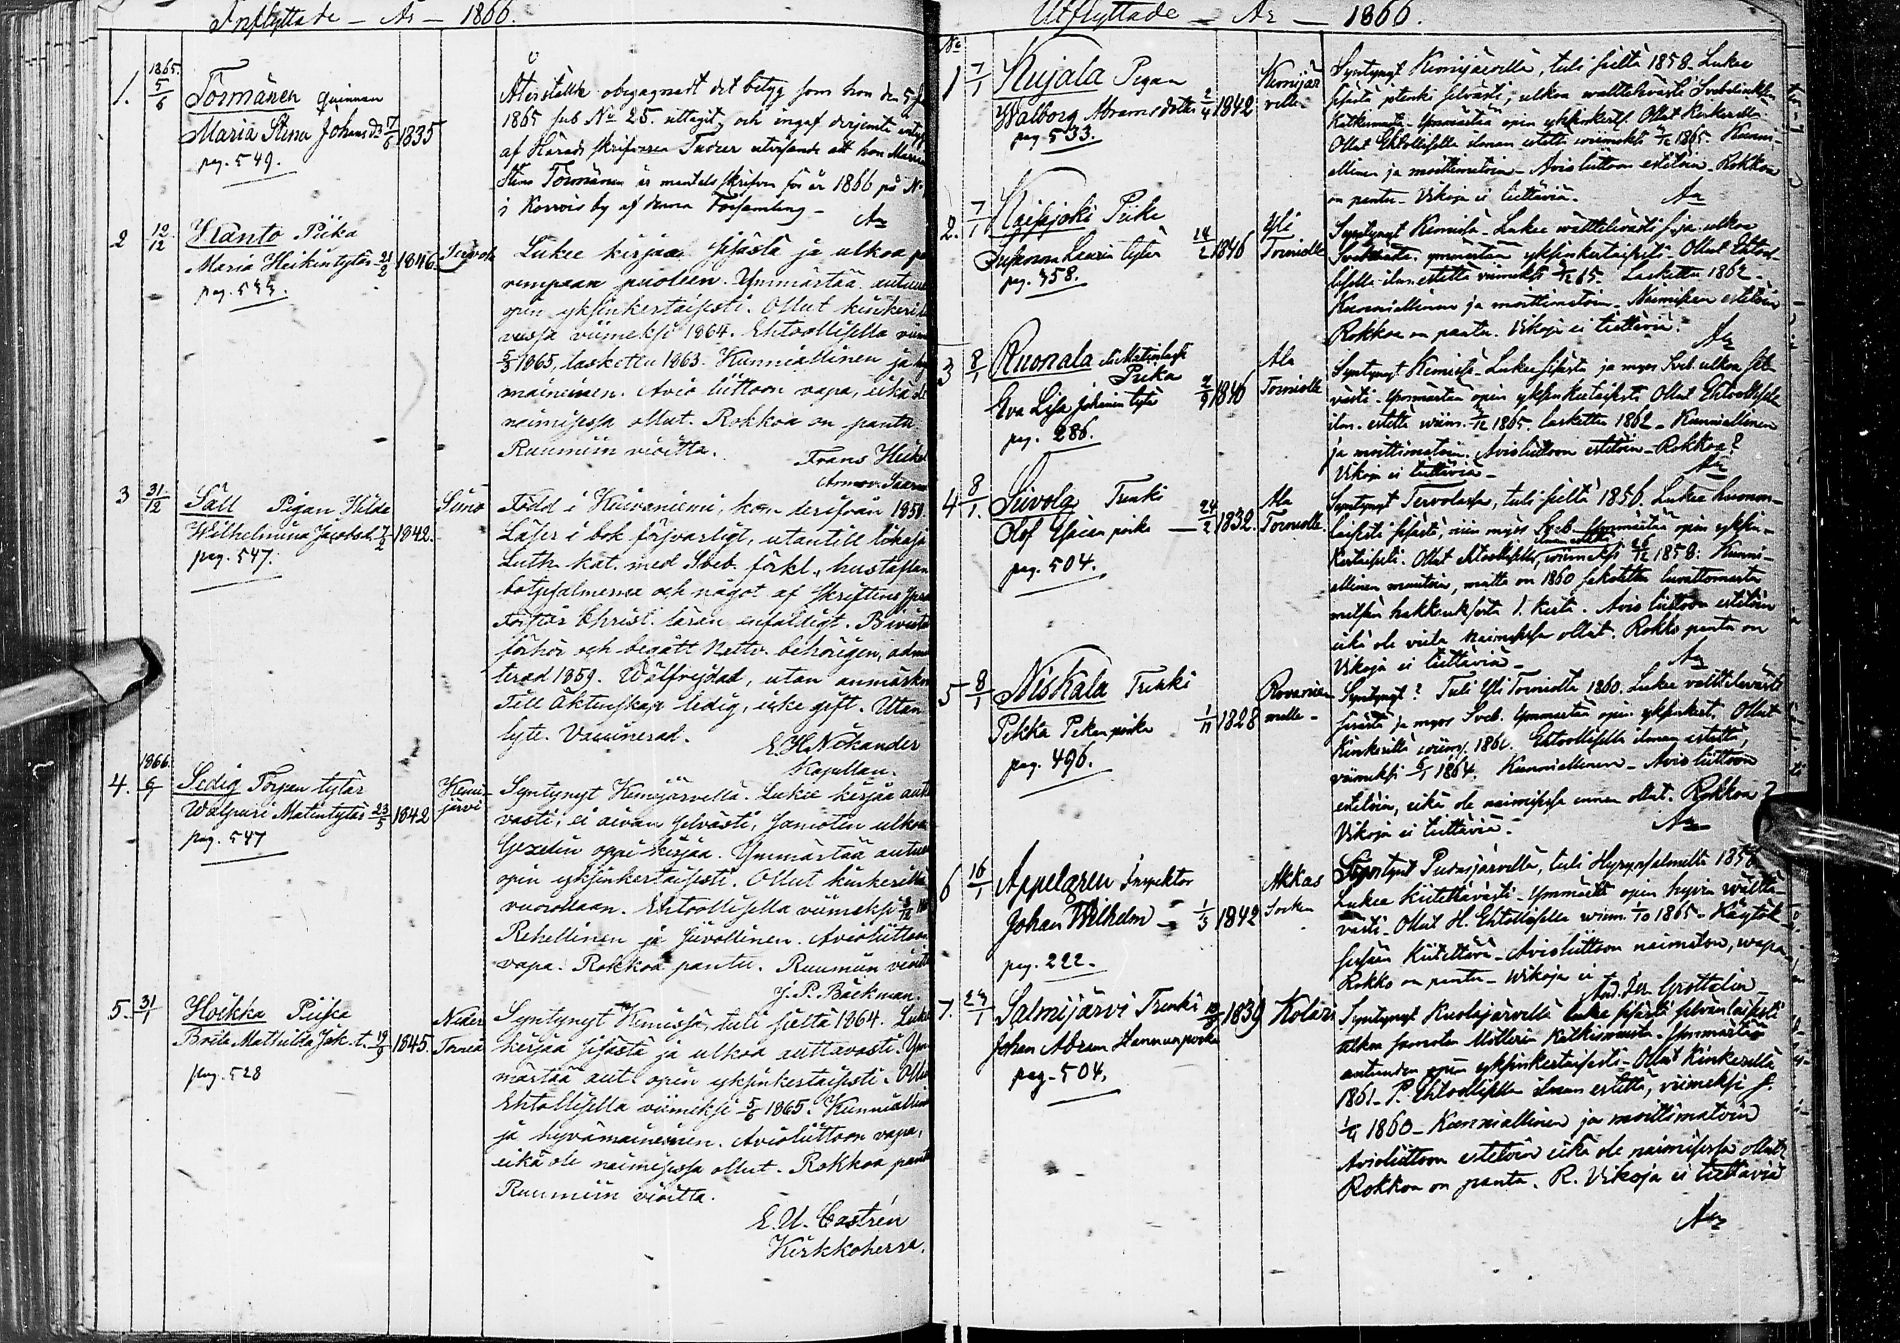 Inflyttade – År – 1866.
1. 1865. 5/6 Tormänen Quinnan
Maria Stina Johans Dr 7/6 1835
pag. 549.
Återställt obegagnadt det betyg som hon den 5/6
1865 sub No 25. uttagit, och ingaf
af Härads Skrifvaren utvisande att hon Maria
Stina Tormänen är mantals skrifven för år 1866 på No
i Korvois by af denna Församling –
2 12/12 Kanto Piika
Maria Heikintytär 21/2 1846
pag. 535.
Tervola
Lukee kirjaa sisästä ja ulkoa
rempaan puoleen. Ymmärtää autuu
opin yksinkertaisesti. Ollut kinkeri
vussa viimeksi 1864. Ehtoollisella viim
5/3 1865, laskettu 1863. Kunniallinen ja hy
mainenen. Avio liittoon vapa, eikä ole
naimisessa ollut. Rokkoa on pantu
Ruumiin viotta.
Frans Heik
3 31/12 Säll Pigan Hilda
Wilhelmina Jacobsd. 7/2 1842.
pag. 547.
Simo
Född i Kuivaniemi, kom derifrån 1851.
Läser i bok försvarligt, utantill lilla
Luth. kat. med Sveb. förkl., hustaflan
botpsalmerna och något af skriftens
Förstår Christ. läran enfaldigt. Bivistat
förhör och begått Nattv. behörigen, admit
terad 1859. Wälfrejdad, utan anmärkn
Till Äktenskap ledig, icke gift. Utan
lyte. Vaccinerad.
E. H. Nikander
Kapellan.
4. 1866. 6/1 Sedig Torpan tytär
Walpuri Matintytär 23/5 1842
pag. 547
Kemi-
järvi
Syntynyt Kemijärvellä. Lukee kirjaa autt
vasti, ei aivan selvästi, samoten ulkoa
Gezelin oppi kirjaa. Ymmärtää autuu
opin yksinkertaisesti. Ollut kinkerillä
vuorollaan. Ehtoollisella viimeksi
Rehellinen ja siivollinen. Avioliittoon
vapa. Rokkoa pantu. Ruumiin viotta
J. P. Bäckman.
5. 31/1 Hoikka Piika
Brita Mathilda Jak. t. 19/9 1845.
pag. 528
Neder
Torneå
Syntynyt Kemissä, tuli sieltä 1864. Lukee
kirjaa sisästä ja ulkoa auttavasti. Ym
märtää aut. opin yksinkertaisesti. Ollut
Ehtollisella viimeksi 5/6 1865. Kunniallinen
ja hyvämaineinen. Avioliittoon vapa,
eikä ole naimisessa ollut. Rokkoa pantu
Ruumiin viotta.
E. U. Castrén
Kirkkoherra.
Utflyttade – År – 1866.
No
1 7/1 Kujala Pigan
Walborg Abrams dotter 2/4 1842
pag. 533.
Kemijär
velle
Syntynyt Kemijärvellä, tuli sieltä 1858. Lukee
sisästä selvästi, ulkoa välttävästi Svebeliuksen
Katkismusta. Ymmärtää opin yksinkert. Ollut Kinkerillä
Ollut Ehtollisella ilman estettä viimeksi 1865. Kunni-
allinen ja moittimatoin – Avio liittoon estetöin. Rokkoa
on pantu. Vikoja ei tiettäviä.
2. 7/1 Kaisijoki Piika
Susanna Laurin tytär 24/2 1846
pag. 358.
Yli
Torniolle
Syntynyt Kemissä. Lukee välttävästi s. ja ulkoa
ymmärtää yksinkertaisesti. Ollut Ehtool-
lisella ilm. estettä viimeksi 65. Laskettu 1862.
Kunniallinen ja moittimatoin. Naimiseen estetöin
Rokkoa on pantu. Vikoja ei tiettäviä.
3 8/1 Ruonala
Piika
Eva Lisa Johanin tytär 1840
pag. 286.
Ala
Torniolle
Syntynyt Kemissä. Lukee sisästä ja myös Sveb. ulkoa sel
västi. Ymmärtää opin yksinkertaisesti. Ollut Ehtoollisella
ilm. estettä viim. 1865 laskettu 1862. Kunniallinen
ja moittimatoin. Avioliittoon estetöin. Rokkoa?
Vikoja ei tiettäviä.
4 8/1. Siivola Trenki
Olof poika – 24/2 1832.
pag. 504.
Ala
Torniolle
Syntynyt Tervolassa, tuli sieltä 1856. Lukee huonon-
laisesti sisästä, niin myös Sveb. Ymmärtää opin yksin-
kertaisesti. Ollut ehtoolisella, ilman estettä viimeksi 1858. Kunni-
allinen muutoin, mutta on 1860 sakotettu luvattomasta
metsän hakkauksesta 1. kerta. Avio liittoon estetöin
eikä ole vielä naimisissa ollut. Rokko pantu on
Vikoja ei tiettäviä.
5 8/1 Niskala Trenki
Pekka Pekan poika 1/11 1828
pag. 496.
Rovanie
melle –
Syntynyt? Tuli Yli Torniolta 1860. Lukee välttävästi
sisästä ja myös Sveb. Ymmärtää opin yksinkert. Ollut
Kinkerillä viim. Ehtoollisella ilman estettä,
viimeksi 1864. Kunniallinen – Avio liittoon
estetöin, eikä ole naimisissa ennen ollut. Rokkoa?
Vikoja ei tiettäviä.
6 16/1 Appelgren Inspektor
Johan Wilhelm – 1/3 1842
pag. 222.
Akkas
Socken
Syntynyt Pudasjärvellä, tuli Hyrynsalmelta
Lukee kiitettävästi. Ymmärtää opin hyvin välttä-
västi. Ollut H. Ehtollisella viim. 1/10 1865. Käytök-
sessään kiitettävä. Avioliittoon naimaton, vapa
Rokko on pantu – vikoja ei
And. Jer. Grottelin
7. 24/1 Salmijärvi Trenki 1839
Johan Abram Hannunpoika
pag. 504.
Kolari
Syntynyt Kuolajärvellä lukee sisästä selvänlaisesti
ulkoa samoten Möllerin Katkismusta. Ymmärtää
autuuden opin yksinkertaisesti. Ollut Kinkerillä
1861. P. Ehtoollisella ilman estettä, viimeksi
1860. Kunniallinen ja moittimatoin
Avioliittoon estetöin eikä ole naimisissa ollut.
Rokkoa on pantu. R. Vikoja ei tiettäviä